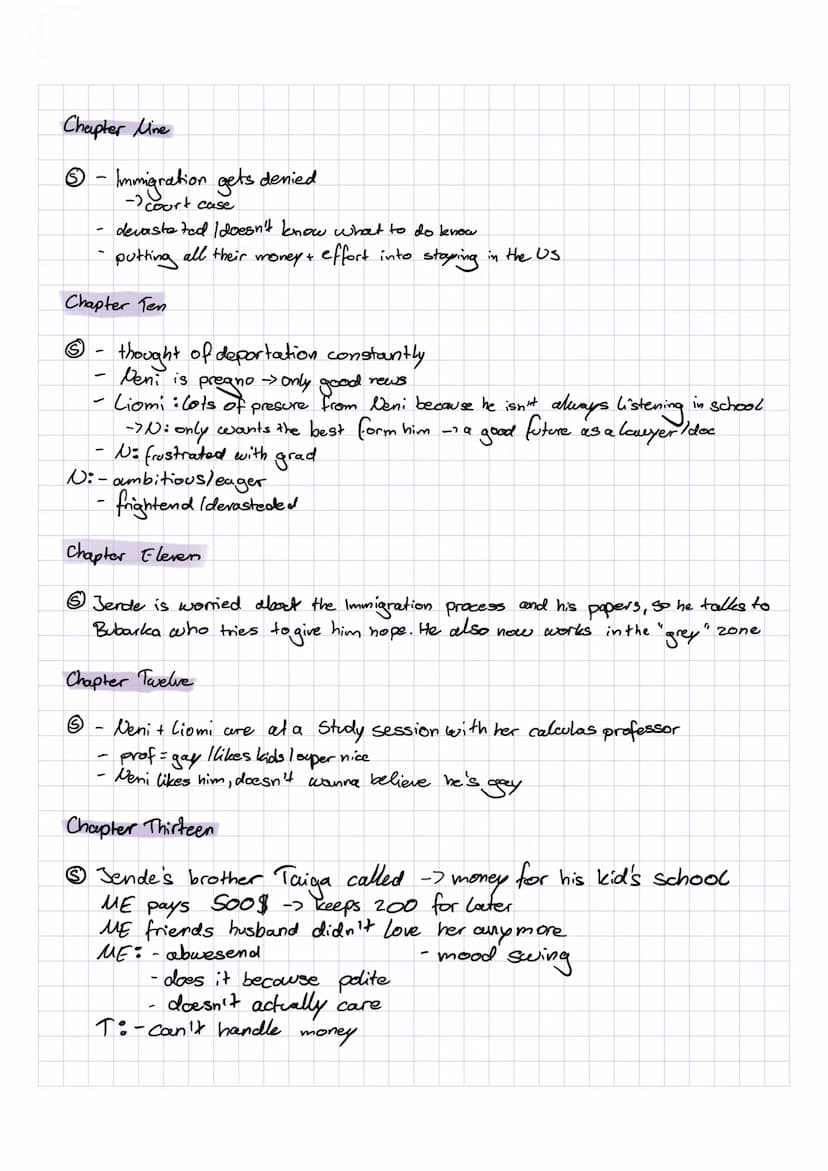 Chapter Nine
Ⓢ - Immigration gets denied
-> court case
- devastated / doesn't know what to do know
- putting all their money + effort into staying in the US
Chapter Ten
Ⓢ - thought of deportation constantly
- Neni is pregno → only good news
- Liomi : Lots of presure from Neni because he isn't always listening in school
-> N: only wants the best form him -> a good future as a lawyer / doc
- N: frustrated with grad
N: - ambitious / eager
- frightend / devasteded
Chapter Eleven
Ⓢ Jende is worried about the Immigration process and his papers, so he talks to
Bubarka who tries to give him hope. He also now works in the "grey" zone
Chapter Twelve
Ⓢ - Neni + Liomi are at a study session with her calculas professor
- prof = gay / likes kids / super nice
- Neni likes him, doesn't wanna believe he's gay
Chapter Thirteen
Ⓢ Jende's brother Taiga called -> money for his kid's school
ME pays 500$ -> keeps 200 for later
ME friends husband didn't love her anymore
ME: - abwesend - mood swing
- does it because polite
- doesn't actually care
T: - can't handle money